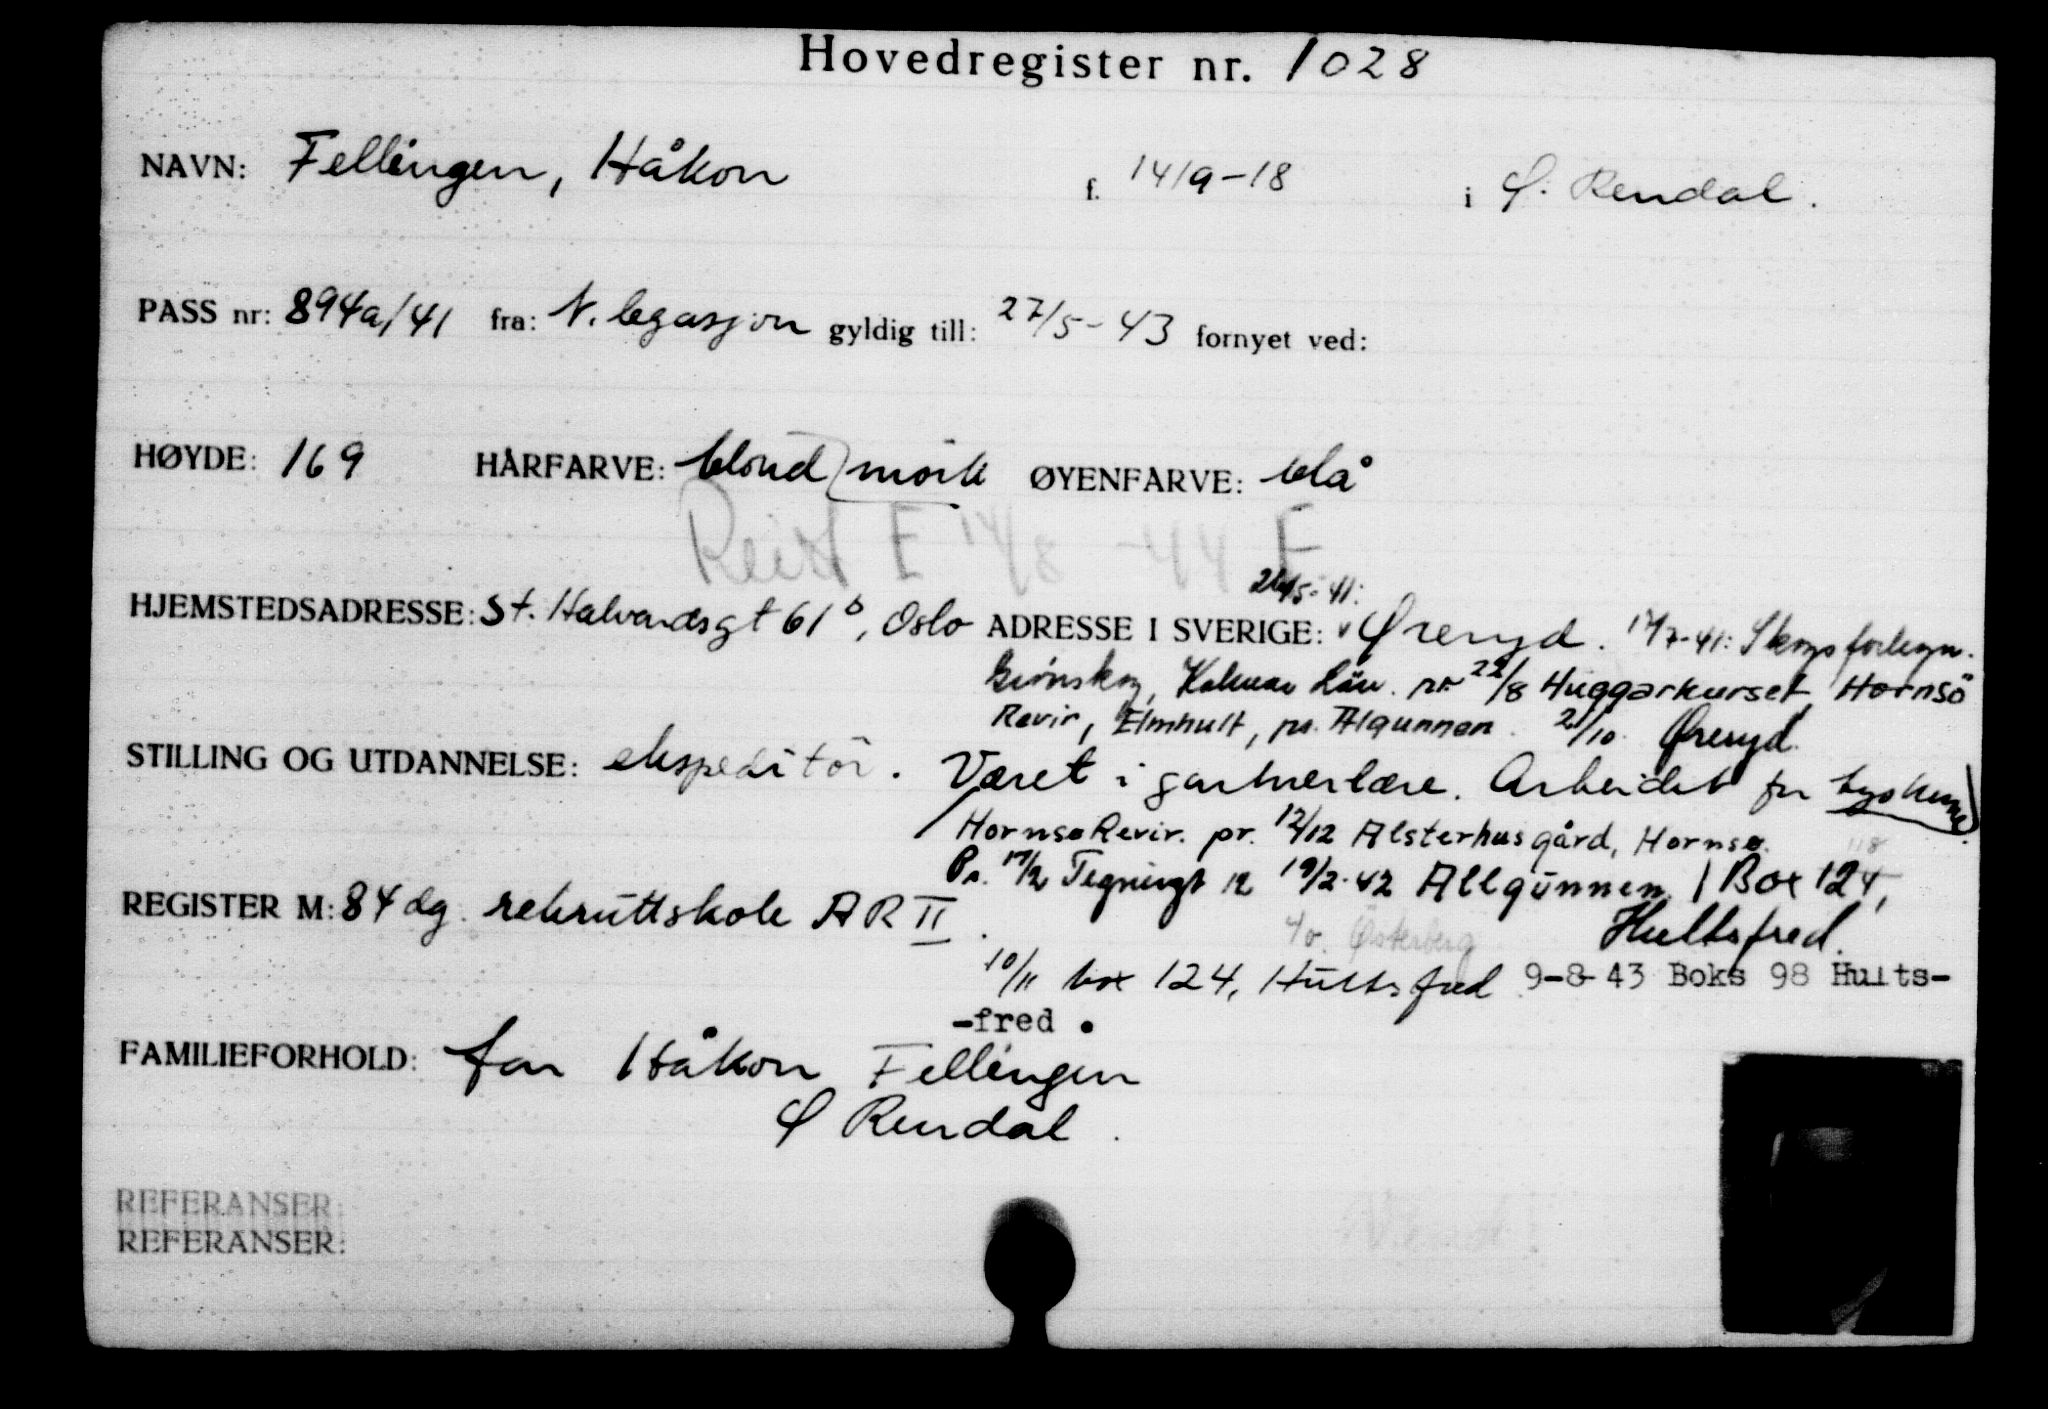 Hovedregister nr. 1028
NAVN: Fellingen, Håkon f. 14/9-18 i Ø. Rendal.
PASS nr: 894a/41 fra: N. legasjon gyldig till: 27/5-43 fornyet ved:
HØYDE: 169 HÅRFARVE: blond/mörk ØYENFARVE: blå
Reist E 14/8 -44 F
26/5-41:
HJEMSTEDSADRESSE: St. Halvardsgt 61 b, Oslo ADRESSE I SVERIGE: Øreryd. 17/7-41: Skogsforlegn.
Grönskog, Kalmar Län. pr 22/8 Huggarkurset, Hornsö
Revir, Elmhult, pr. Algunnen. 2/10 Øreryd.
STILLING OG UTDANNELSE: ekspeditör. Været i gartnerlære. Arbeidet for tyskerne
Hornsø Revir. pr. 12/12 Alsterhusgård, Hornsø.
Pr. 17/2 12 19/2-42 Allgünnen / Box 124,
REGISTER M: 84 dg. rekruttskole AR II.
c/o. Österberg Hultsfred.
10/11 box 124, Hultsfred 9-8-43 Boks 98 Hults-
-fred .
FAMILIEFORHOLD: far Håkon Fellingen
Ø Rendal.
REFERANSER:
REFERANSER: